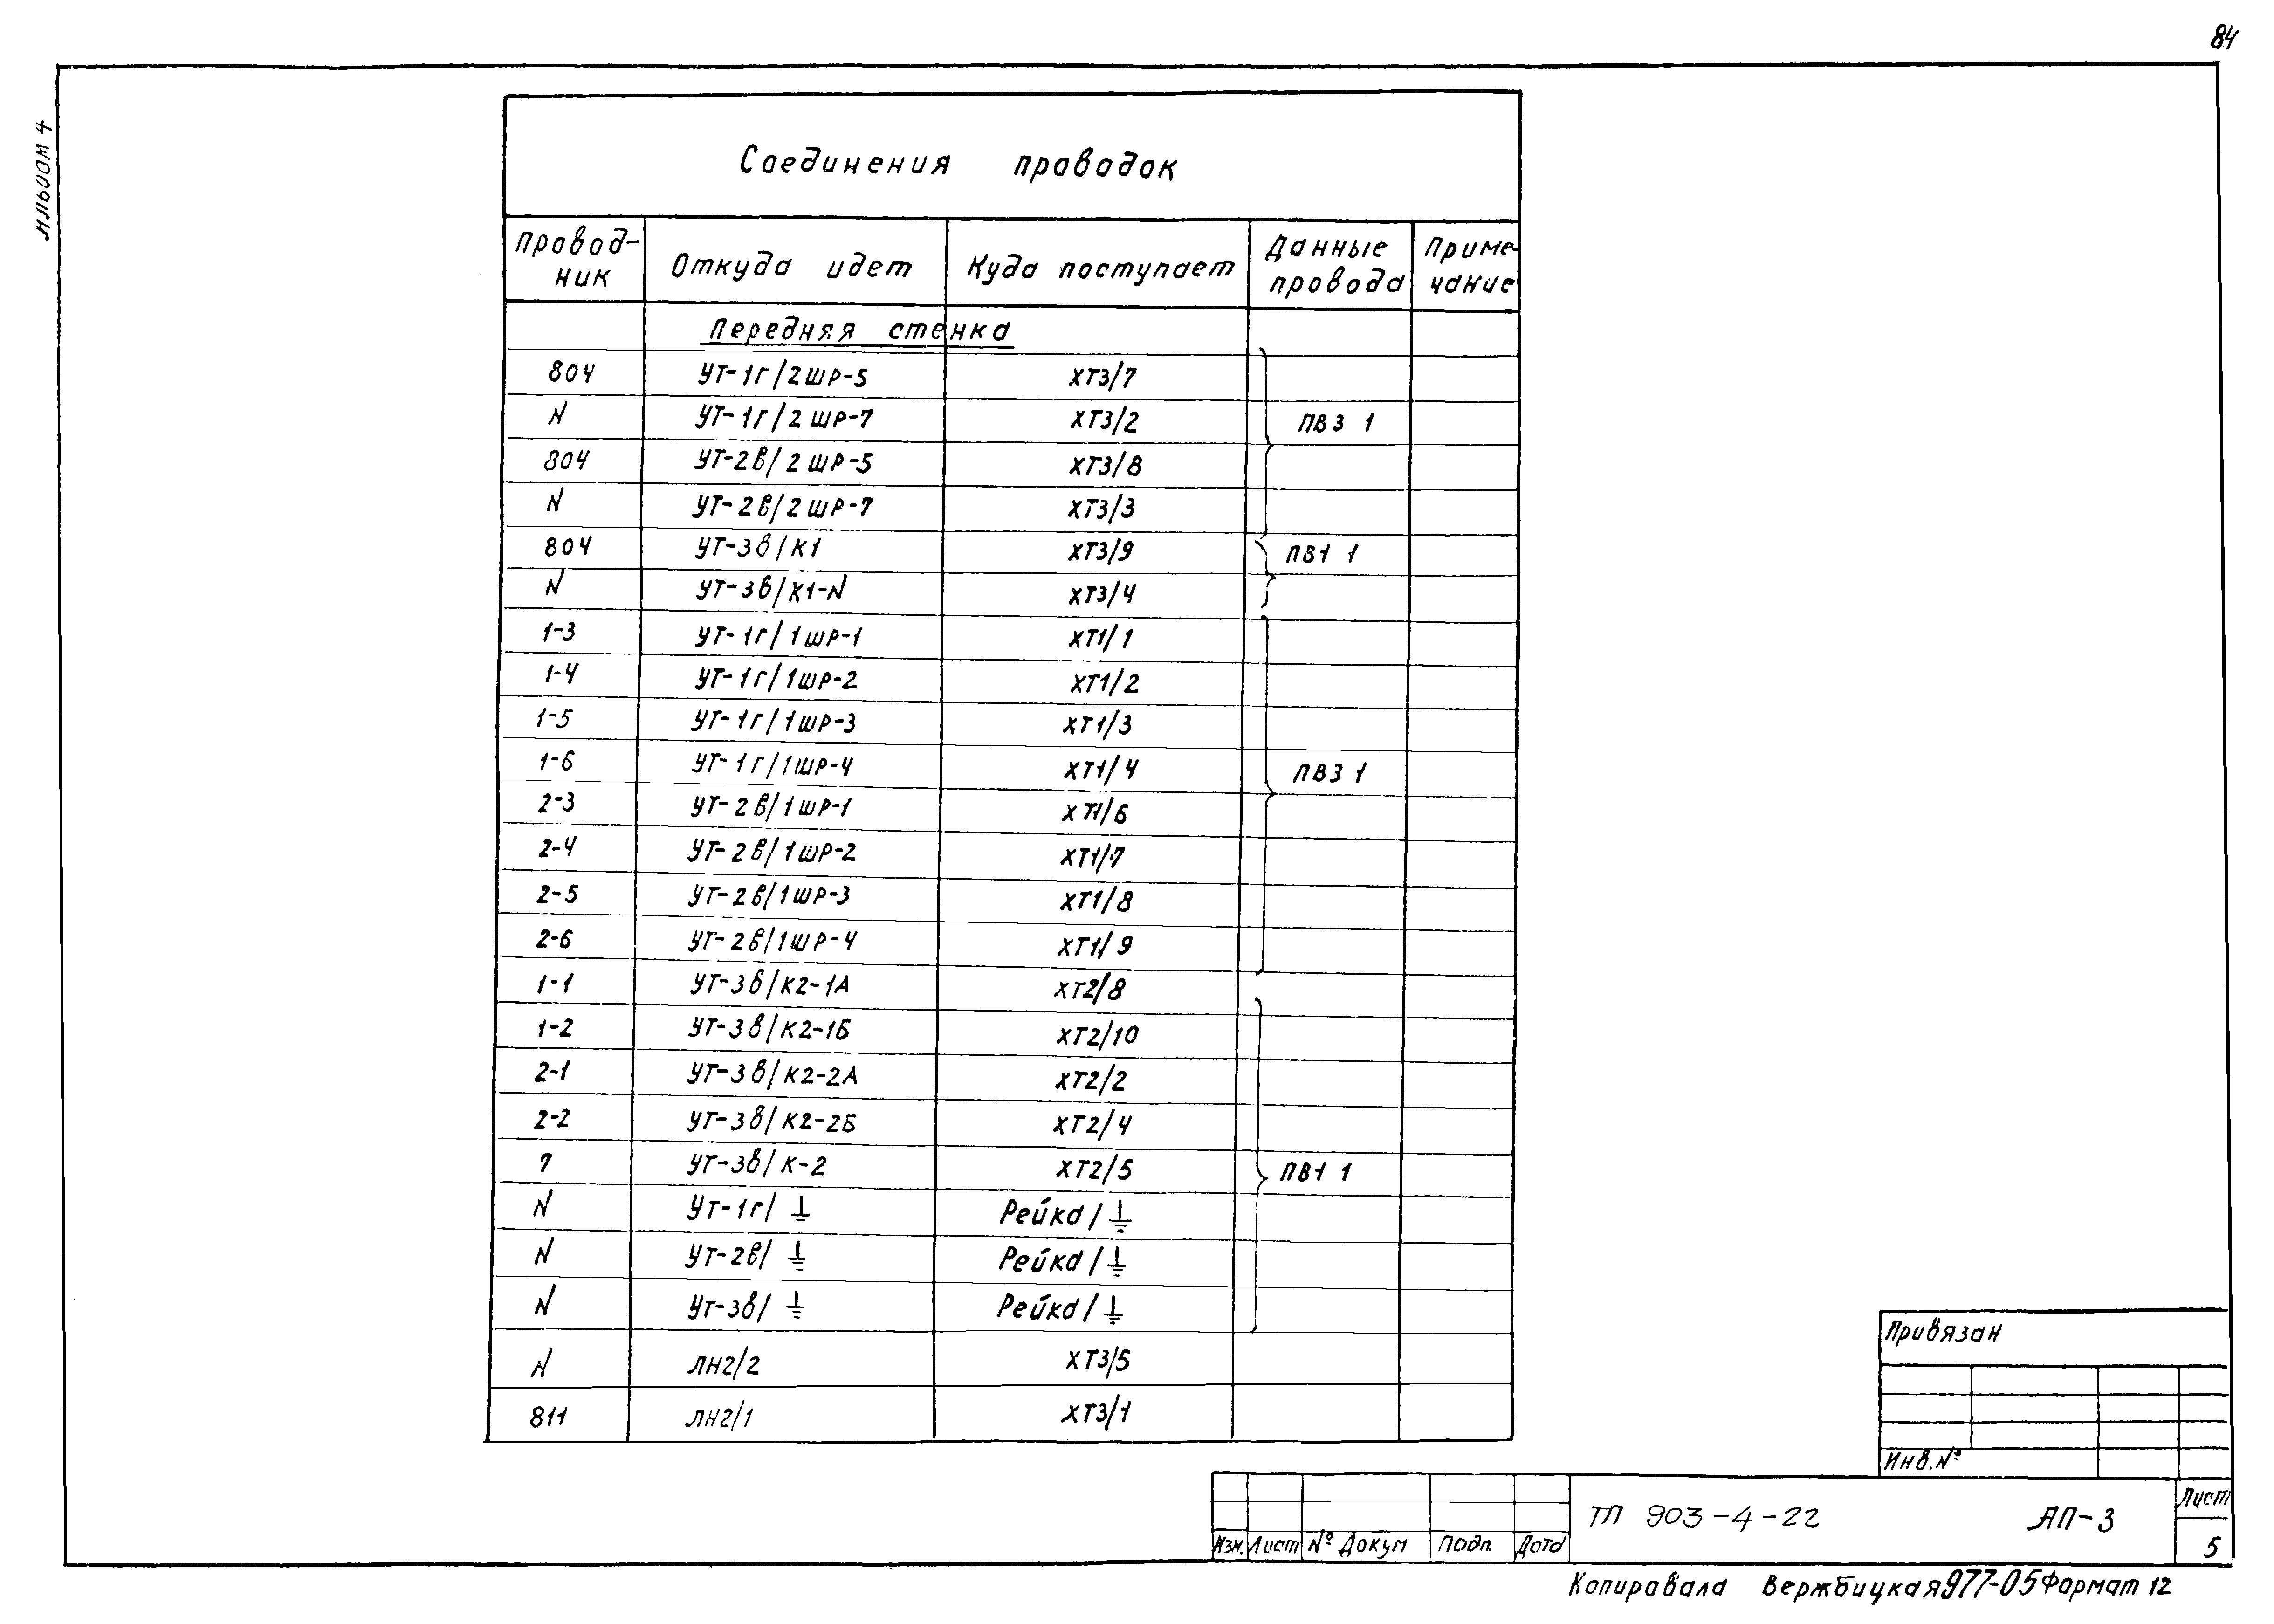 84
Альбом 4
Соединения проводок
Провод-ник | Откуда идет | Куда поступает | Данные провода | Приме-чание
Передняя стенка
804 | УТ-1г/2ШР-5 | ХТ3/7
N | УТ-1г/2ШР-7 | ХТ3/2 | ПВ3 1
804 | УТ-2в/2ШР-5 | ХТ3/8
N | УТ-2в/2ШР-7 | ХТ3/3
804 | УТ-3в/К1 | ХТ3/9 | ПВ1 1
N | УТ-3в/К1-N | ХТ3/4
1-3 | УТ-1г/1ШР-1 | ХТ1/1
1-4 | УТ-1г/1ШР-2 | ХТ1/2
1-5 | УТ-1г/1ШР-3 | ХТ1/3
1-6 | УТ-1г/1ШР-4 | ХТ1/4 | ПВ3 1
2-3 | УТ-2в/1ШР-1 | ХТ1/6
2-4 | УТ-2в/1ШР-2 | ХТ1/7
2-5 | УТ-2в/1ШР-3 | ХТ1/8
2-6 | УТ-2в/1ШР-4 | ХТ1/9
1-1 | УТ-3в/К2-1А | ХТ2/8
1-2 | УТ-3в/К2-1Б | ХТ2/10
2-1 | УТ-3в/К2-2А | ХТ2/2
2-2 | УТ-3в/К2-2Б | ХТ2/4
7 | УТ-3в/К-2 | ХТ2/5 | ПВ1 1
N | УТ-1г/⏚ | Рейка/⏚
N | УТ-2в/⏚ | Рейка/⏚
N | УТ-3в/⏚ | Рейка/⏚
N | ЛН2/2 | ХТ3/5
811 | ЛН2/1 | ХТ3/1
Привязан
Инв. №
Изм. | Лист | № Докум | Подп. | Дата
ТП 903-4-22 АП-3
Лист
5
Копировала Вержбицкая 977-05 Формат 12